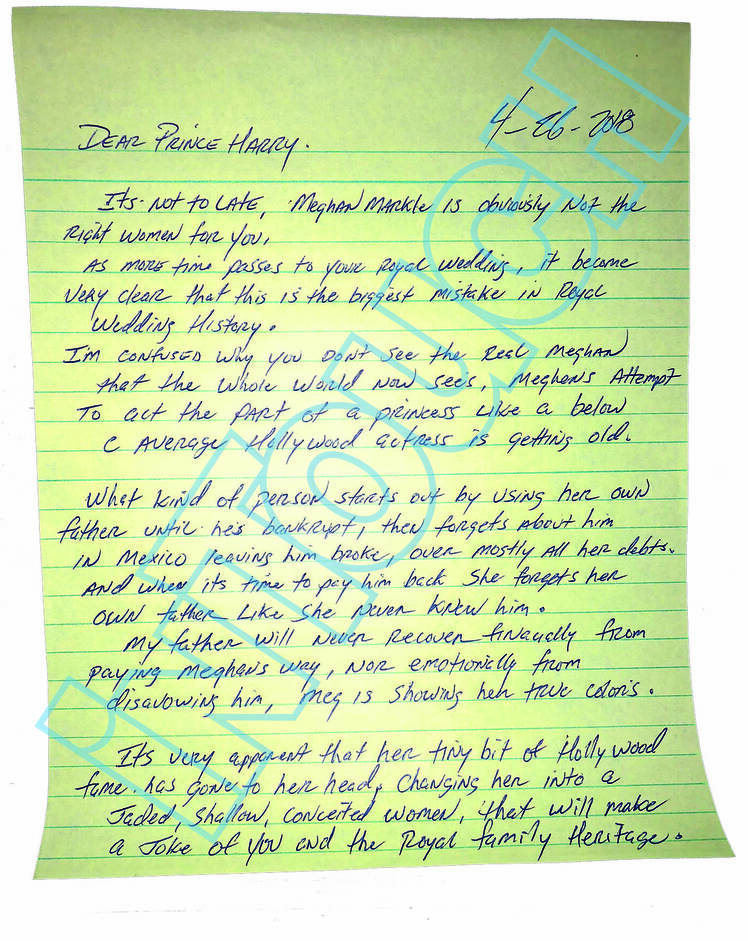 4-26-2018
DEAR PRINCE HARRY.
It's not to LATE, Meghan Markle is obviously Not the
Right women for you,
As more time passes to your Royal Wedding, it become
very clear that this is the biggest mistake in Royal
Wedding History.
I'm confused why you don't see the real Meghan
that the whole world now sees, Meghan's Attempt
To act the part of a princess like a below
C Average Hollywood actress is getting old.
What kind of person starts out by using her own
father until he's bankrupt, then forgets about him
in Mexico leaving him broke, over mostly all her debts.
And when its time to pay him back she forgets her
own father like she never knew him.
My father will never recover finacually from
paying Meghan's way, nor emotionally from
disavowing him, Meg is showing her true colors.
It's very apparent that her tiny bit of Hollywood
fame has gone to her head, Changing her into a
Jaded, shallow, conceited women, that will make
a Joke of you and the Royal family Heritage.
INTOUCH